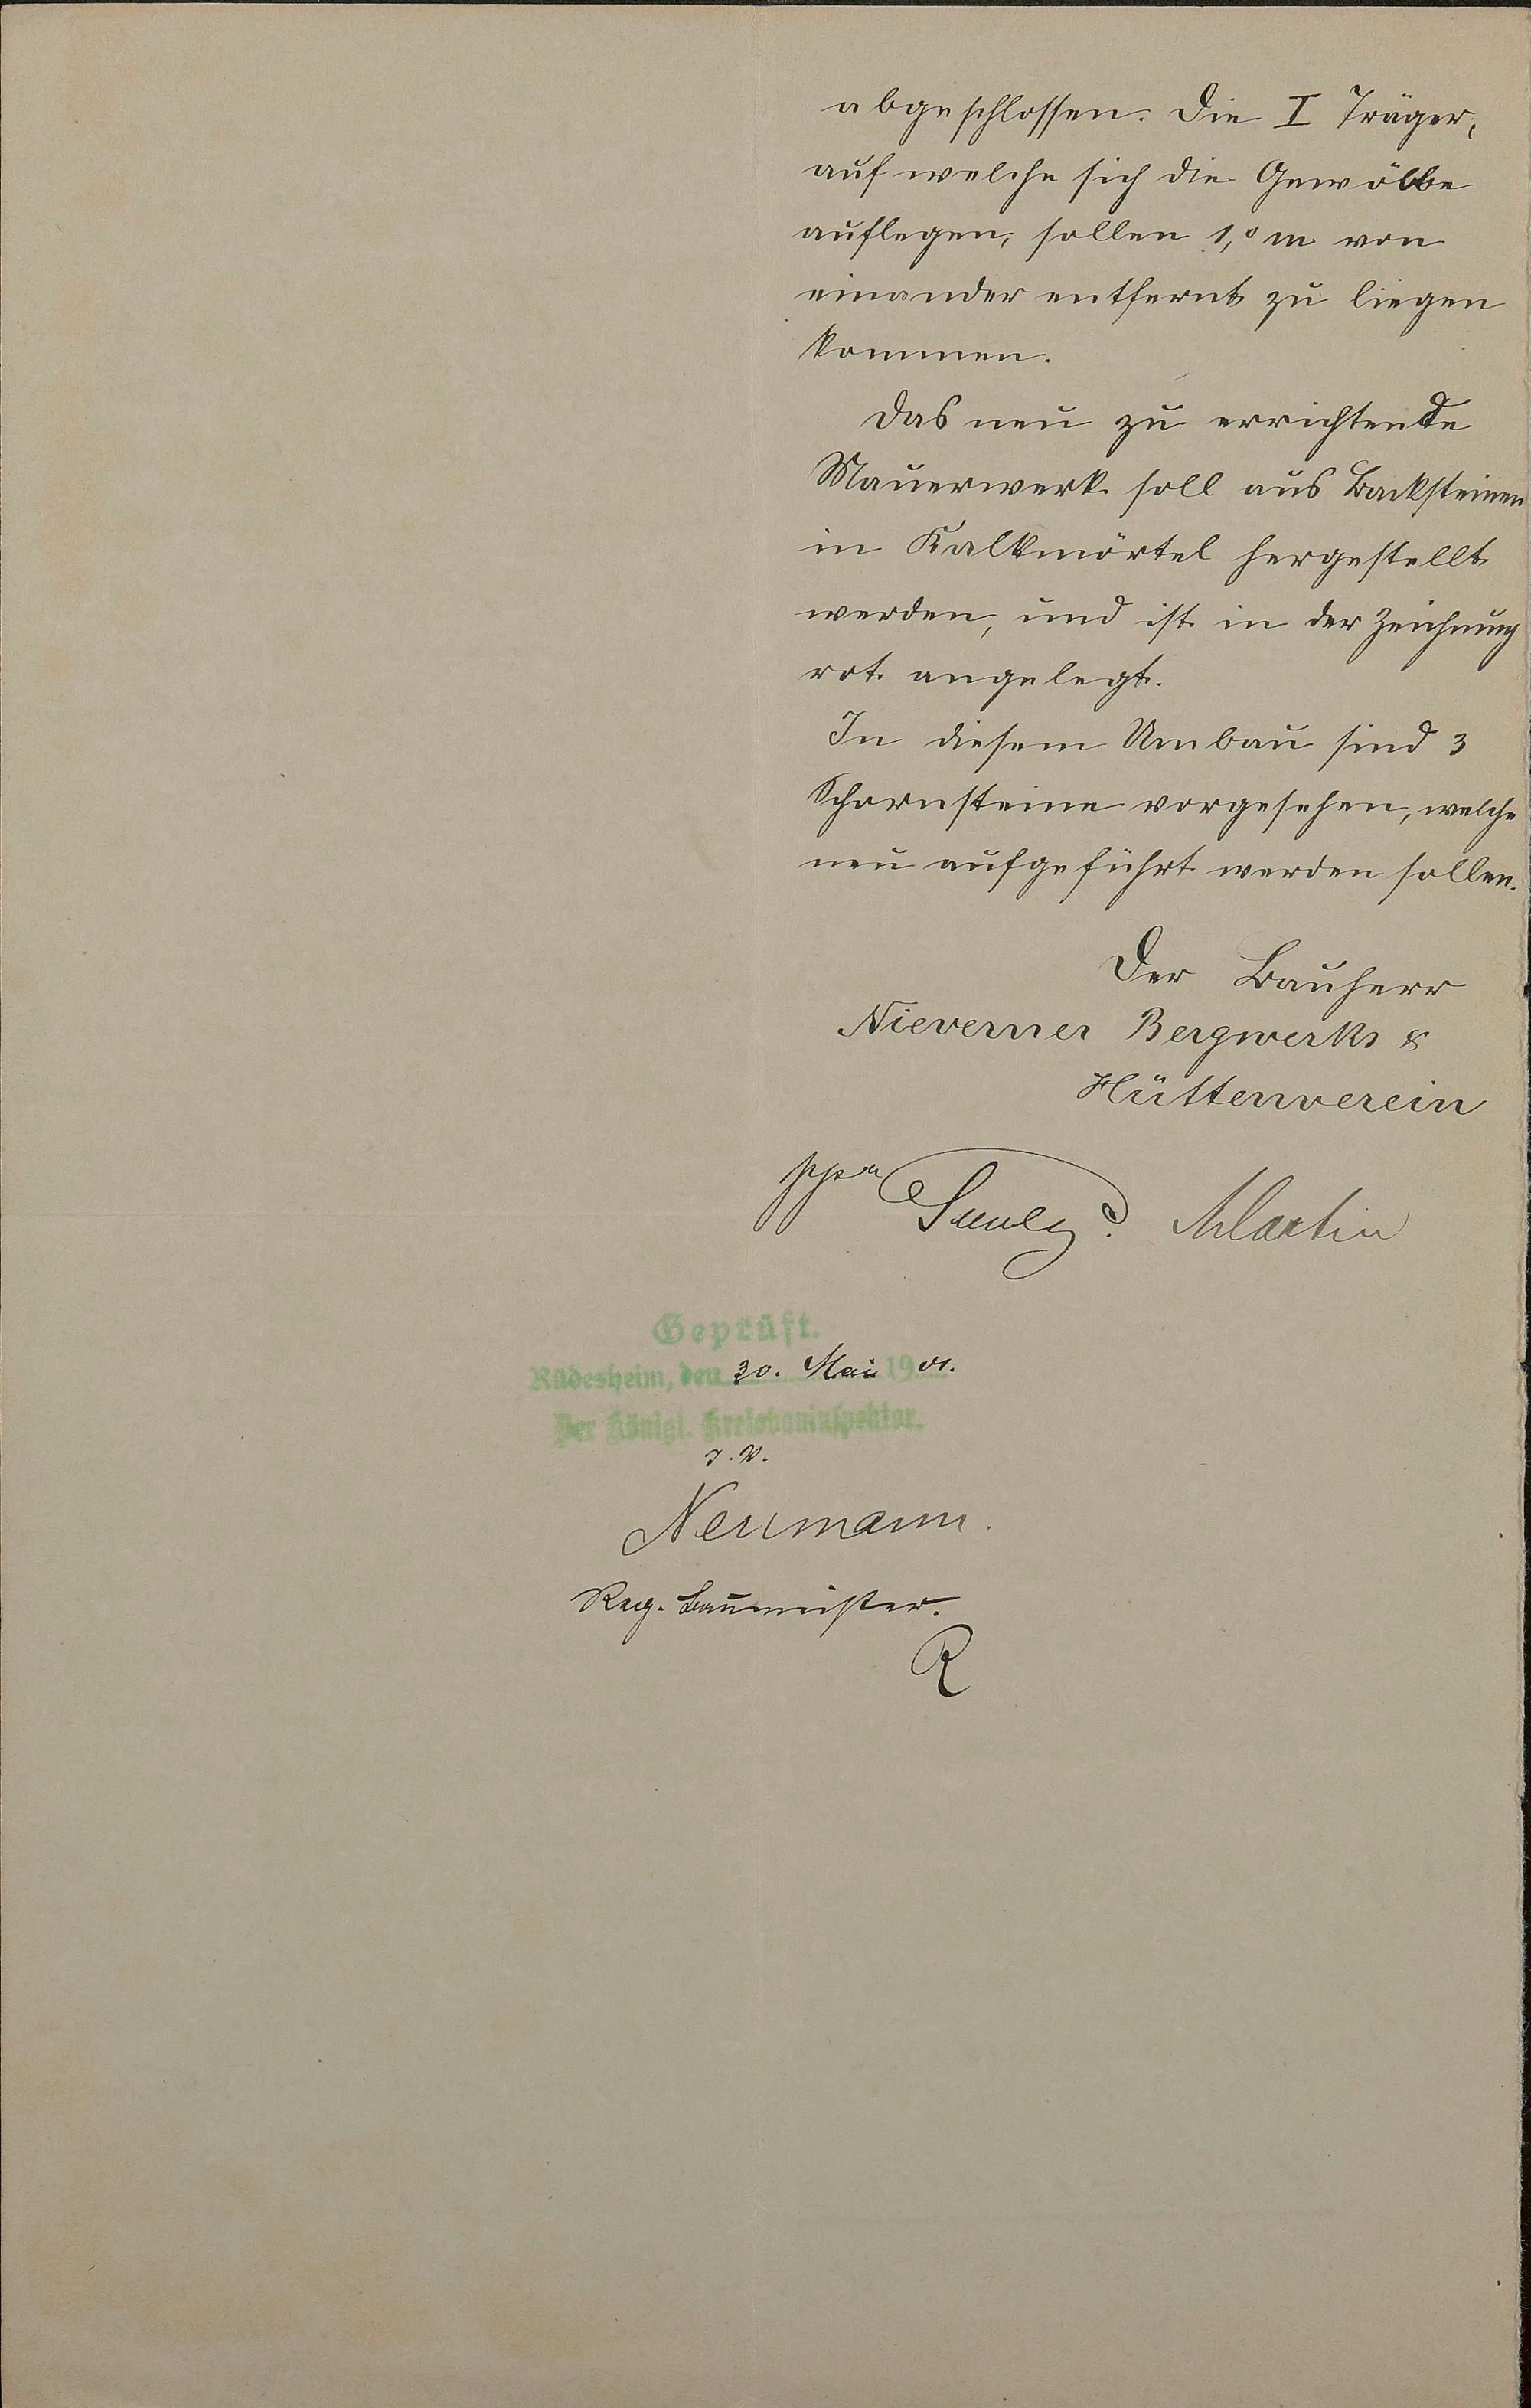 abgeschlossen. Die I Träger,
auf welche sich die Gewölbe
auflegen, sollen 1,0 m von
einander entfernt zu liegen
kommen.
Das neu zu errichtende
Mauerwerk soll aus Backsteinen
in Kalkmörtel hergestellt
werden, und ist in der Zeichnung
rot angelegt.
In diesem Umbau sind 3
Schornsteine vorgesehen, welche
neu aufgeführt werden sollen.
Der Bauherr
Nieverner Bergwerks &
Hüttenverein
ppa Martin
Geprüft.
Rüdesheim, den 30. Mai 1901.
Der Königl. Kreisbauinspektor.
I. V.
Neumann.
Reg. Baumeister.
R